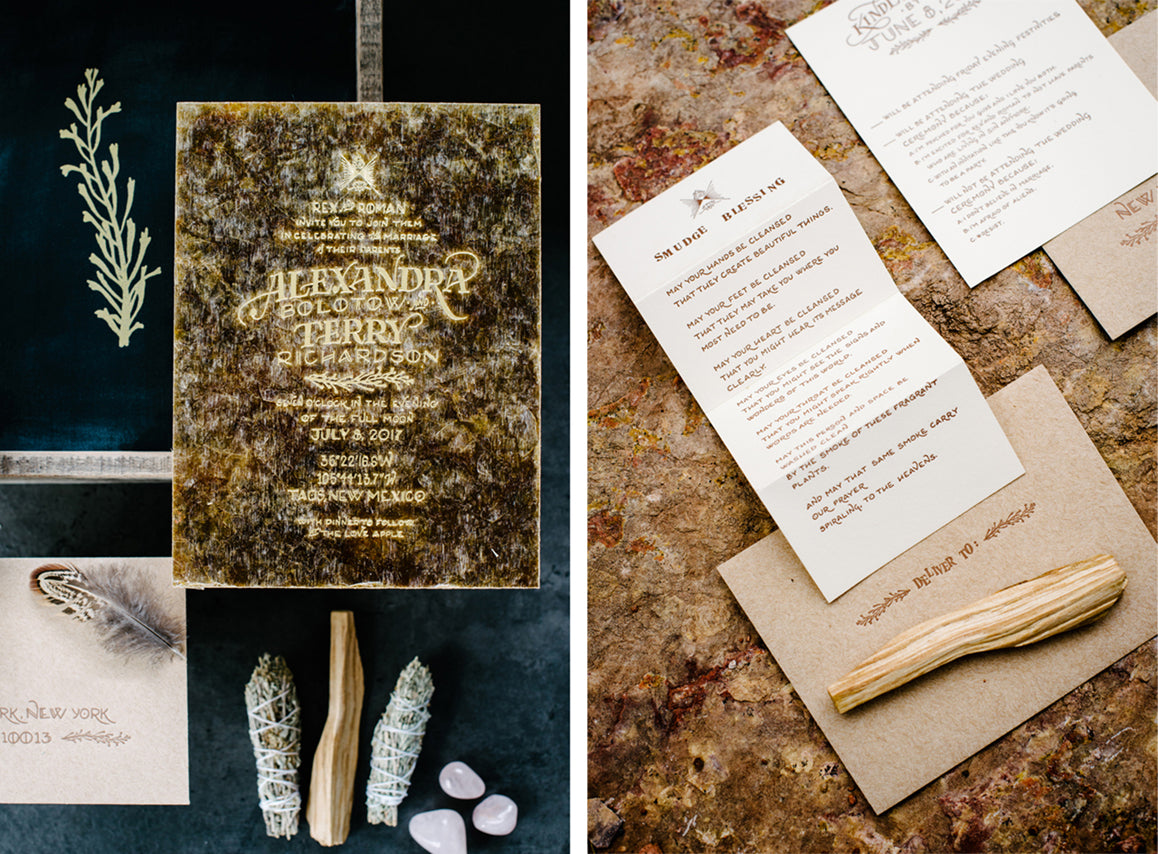 REX & ROMAN
INVITE YOU TO JOIN THEM
IN CELEBRATING THE MARRIAGE
of THEIR PARENTS
ALEXANDRA
BOLOTOW AND
TERRY
RICHARDSON
O'CLOCK IN THE EVENING
OF THE FULL MOON
JULY 8, 2017
TAOS, NEW MEXICO
WITH DINNER TO FOLLOW
THE LOVE APPLE
RK, NEW YORK
10013
KINDL
BY
JUNE 8, 2
WILL BE ATTENDING FRIDAY EVENING FESTIVITIES
WILL BE ATTENDING THE WEDDING
CEREMONY BECAUSE:
A: I'M EXCITED FOR YOU GUYS AND I LOVE YOU BOTH.
B: I'M EXCITED FOR REX AND ROMAN TO NOT HAVE PARENTS
WHO ARE LIVING IN SIN ANYMORE.
C: WITH AN INVITATION LIKE THIS YOU KNOW IT'S GOING
TO BE A PARTY.
WILL NOT BE ATTENDING THE WEDDING
CEREMONY BECAUSE:
A: I DON'T BELIEVE IN MARRIAGE.
B: I'M AFRAID OF ALIENS.
NEW
SMUDGE BLESSING
MAY YOUR HANDS BE CLEANSED
THAT THEY CREATE BEAUTIFUL THINGS.
MAY YOUR FEET BE CLEANSED
THAT THEY MAY TAKE YOU WHERE YOU
MOST NEED TO BE.
MAY YOUR HEART BE CLEANSED
THAT YOU MIGHT HEAR ITS MESSAGE
CLEARLY.
MAY YOUR EYES BE CLEANSED
THAT YOU MIGHT SEE THE SIGNS AND
WONDERS OF THIS WORLD.
MAY YOUR THROAT BE CLEANSED
THAT YOU MIGHT SPEAK RIGHTLY WHEN
WORDS ARE NEEDED.
MAY THIS PERSON AND SPACE BE
WASHED CLEAN
BY THE SMOKE OF THESE FRAGRANT
PLANTS.
AND MAY THAT SAME SMOKE CARRY
OUR PRAYER
SPIRALING, TO THE HEAVENS.
DELIVER TO: